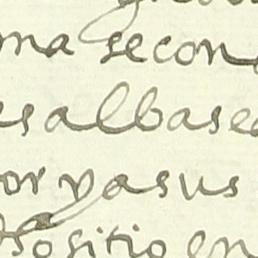 ma secon
es al base
or y a sus
ositio en